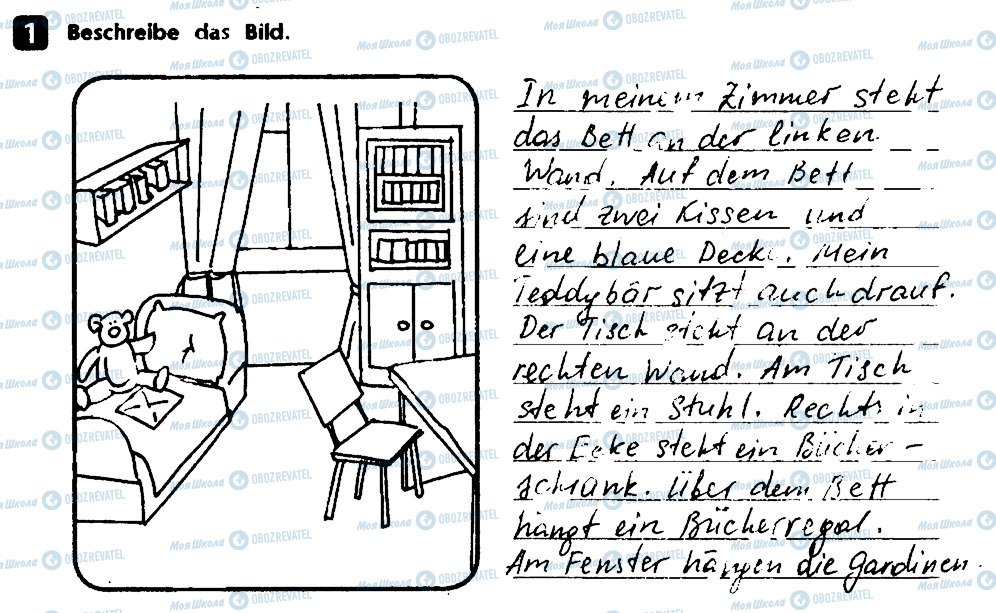 1 Beschreibe das Bild.
In meinem Zimmer steht
das Bett an der linken
Wand. Auf dem Bett
sind zwei Kissen und
eine blaue Decke. Mein
Teddybär sitzt auch drauf.
Der Tisch steht an der
rechten Wand. Am Tisch
steht ein Stuhl. Rechts in
der Ecke steht ein Bücher-
schrank. Über dem Bett
hängt ein Bücherregal.
Am Fenster hängen die Gardinen.
Моя Школа OBOZREVATEL